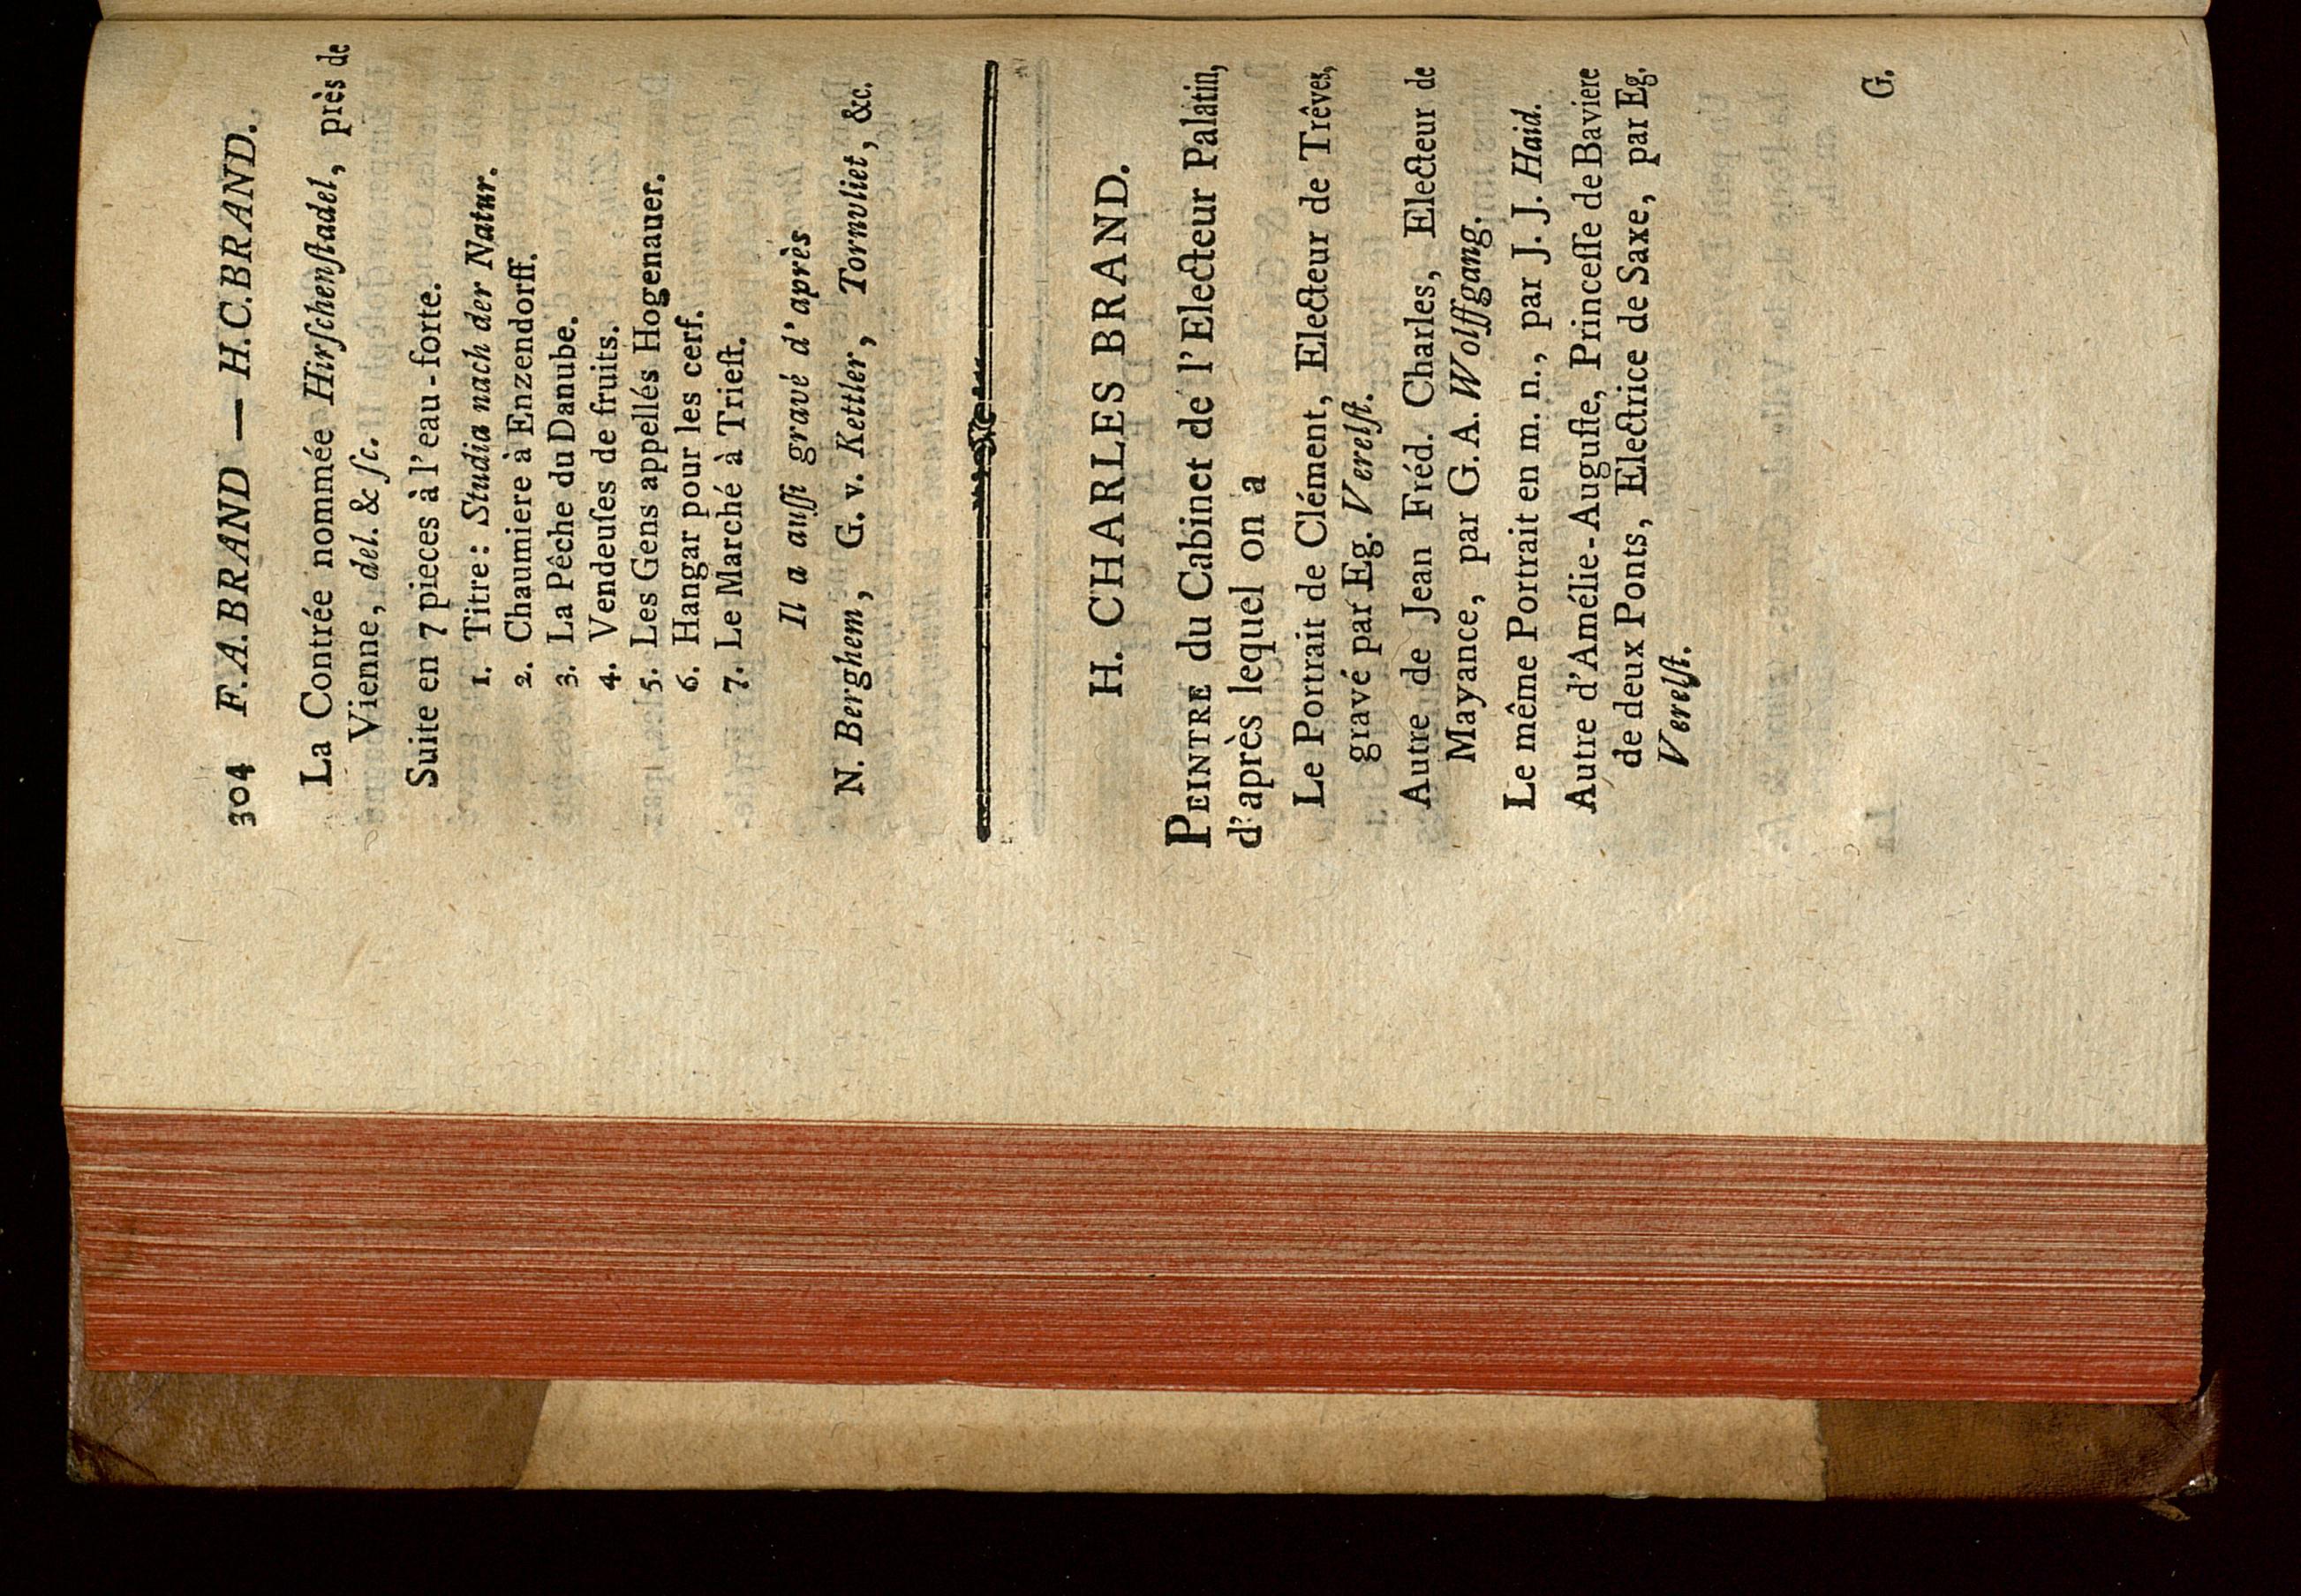 304 F. A. BRAND — H. C. BRAND.
La Contrée nommée Hirſchenſtadel, près de
Vienne, del. & ſc.
Suite en 7 pieces à l'eau-forte.
1. Titre: Studia nach der Natur.
2. Chaumiere à Enzendorff.
3. La Pêche du Danube.
4. Vendeuſes de fruits.
5. Les Gens appellés Hogenauer.
6. Hangar pour les cerf.
7. Le Marché à Trieſt.
Il a auſſi gravé d'après
N. Berghem, G. v. Kettler, Tornvliet, &c.
H. CHARLES BRAND.
PEINTRE du Cabinet de l'Electeur Palatin,
d'après lequel on a
Le Portrait de Clément, Electeur de Trêves,
gravé par Eg. Verelſt.
Autre de Jean Fréd. Charles, Electeur de
Mayance, par G. A. Wolffgang.
Le même Portrait en m. n., par J. J. Haid.
Autre d'Amélie-Auguſte, Princeſſe de Baviere
de deux Ponts, Electrice de Saxe, par Eg.
Verelſt.
G.